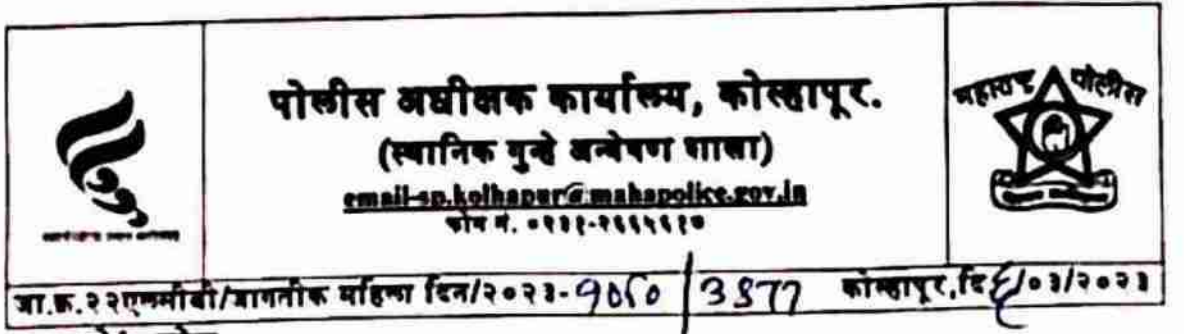 पोलीस अधीक्षक कार्यालय, कोल्हापूर.
(स्थानिक गुन्हे अन्वेषण शाखा)
email-sp.kolhapur@mahapolice.gov.in
फोन नं. ०२३१-२६६५६१७
महाराष्ट्र पोलीस
जा.क्र.२२एलसीबी/जागतीक महिला दिन/२०२३- कोल्हापूर,दि /०३/२०२३